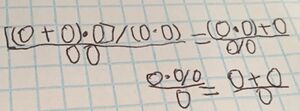 [(0+0)•0]/(0•0)/00=(0•0)+0/0/0
0•0/0/0=0+0/0